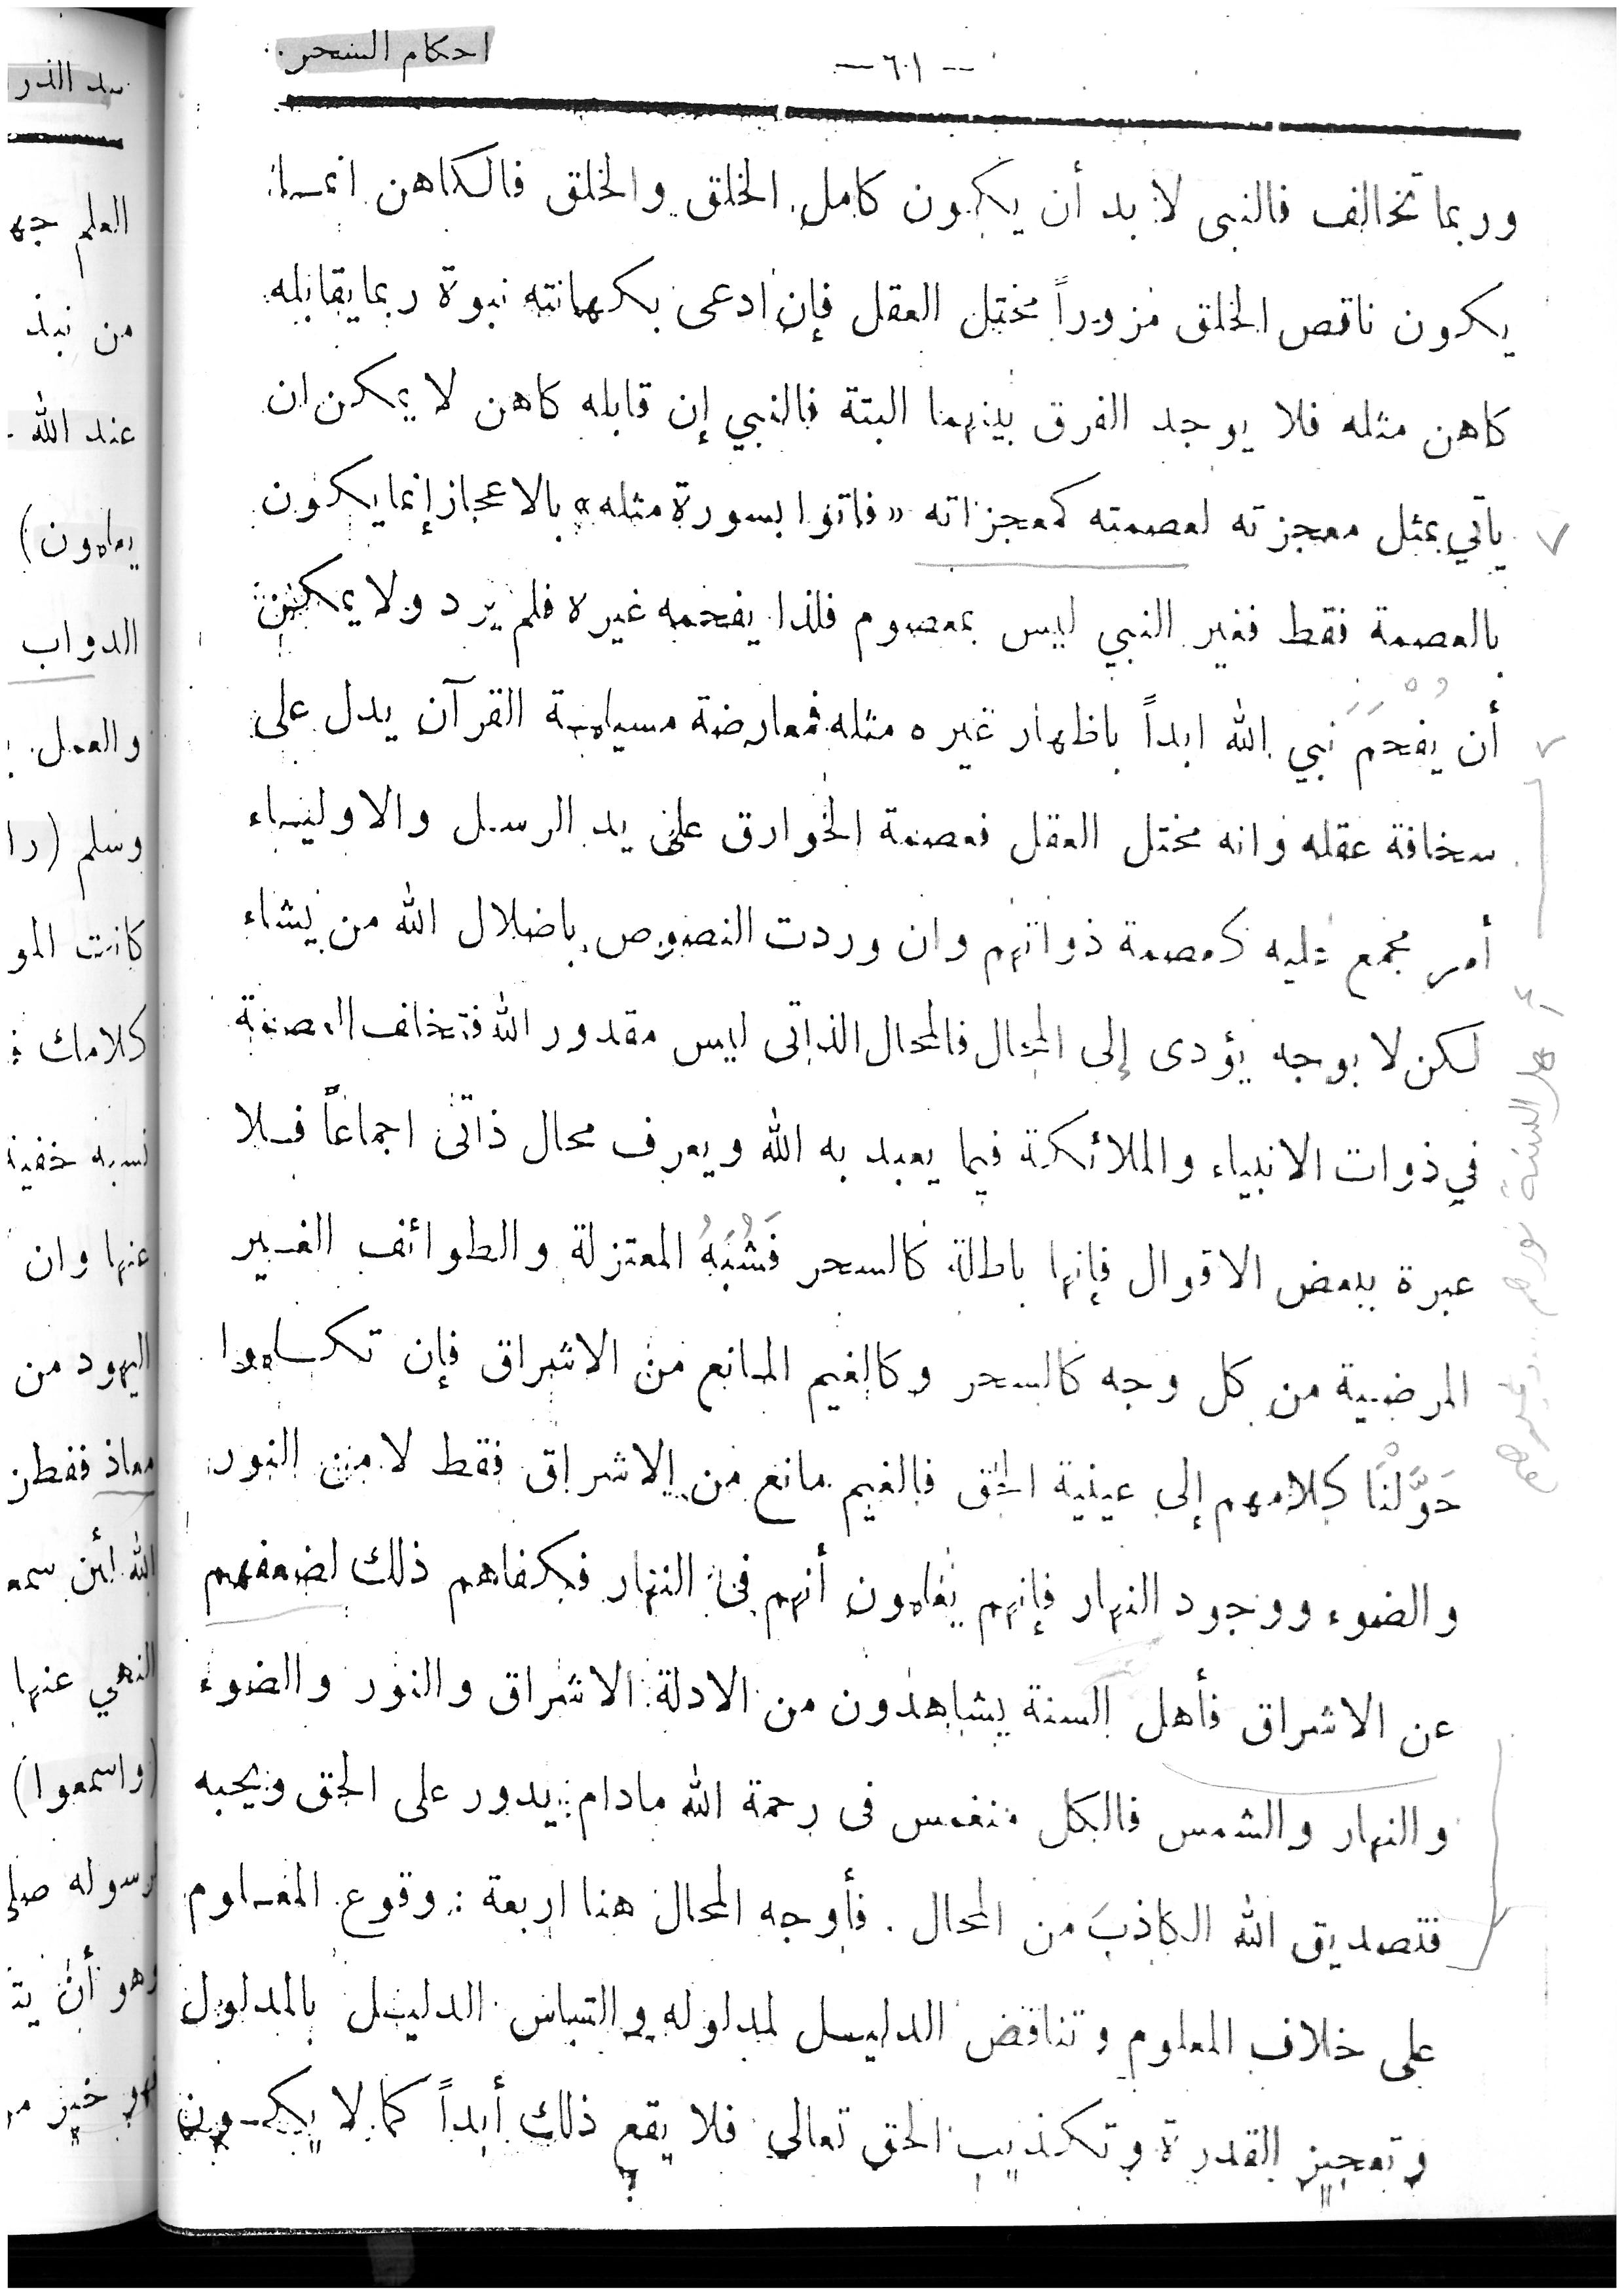 احكام السحر
— ٦٠١ —
وربما تخالف فالنبى لا بد أن يكون كامل الخلق والخلق فالكاهن انما
يكون ناقص الخلق مزوراً مختل العقل فإن ادعى بكهانته نبوة ربما يقابله
كاهن مثله فلا يوجد الفرق بينهما البتة فالنبي إن قابله كاهن لا يمكن ان
يأتي بمثل معجزته لعصمته كمعجزاته «فاتوا بسورة مثله» بالاعجاز إنما يكون
بالعصمة فقط فغير النبي ليس بمعصوم فلذا يفحمه غيره فلم يرد ولا يمكن
أن يُفْحَمَ نَبي الله ابداً باظهار غيره مثله فمعارضة مسيلمة القرآن يدل على
سخافة عقله وانه مختل العقل فعصمة الخوارق على يد الرسل والاولياء
أمر مجمع عليه كعصمة ذواتهم وان وردت النصوص باضلال الله من يشاء
لكن لا بوجه يؤدى إلى المحال فالمحال الذاتى ليس مقدور الله فتخلف العصمة
في ذوات الانبياء والملائكة فيما يعبد به الله ويعرف محال ذاتى اجماعاً فلا
عبرة ببعض الاقوال فإنها باطلة كالسحر فَشُبَهُ المعتزلة والطوائف الغير
المرضية من كل وجه كالسحر وكالغيم المانع من الاشراق فإن تكلموا
حَوَّلْنَا كلامهم إلى عينية الحق فالغيم مانع من الاشراق فقط لا من النور
والضوء ووجود النهار فإنهم يعلمون أنهم فى النهار فكفاهم ذلك لضعفهم
عن الاشراق فأهل السنة يشاهدون من الادلة الاشراق والنور والضوء
والنهار والشمس فالكل منغمس فى رحمة الله مادام يدور على الحق ويحبه
فتصديق الله الكاذبَ من المحال . فأوجه المحال هنا اربعة : وقوع المعلوم
على خلاف المعلوم وتناقض الدليل لمدلوله والتباس الدليل بالمدلول
وتعجيز القدرة وتكذيب الحق تعالى فلا يقع ذلك أبداً كما لا يكون
العلم
من نبذ
عند الله
يعلمون)
الدواب
والعمل
وسلم (را
كانت المو
كلامك
نسبه خفية
عنها وان
اليهود من
معاذ ففطن
الله لئن سمع
النهي عنها
(واسمعوا)
رسوله صلى
وهو أن
فهو خير